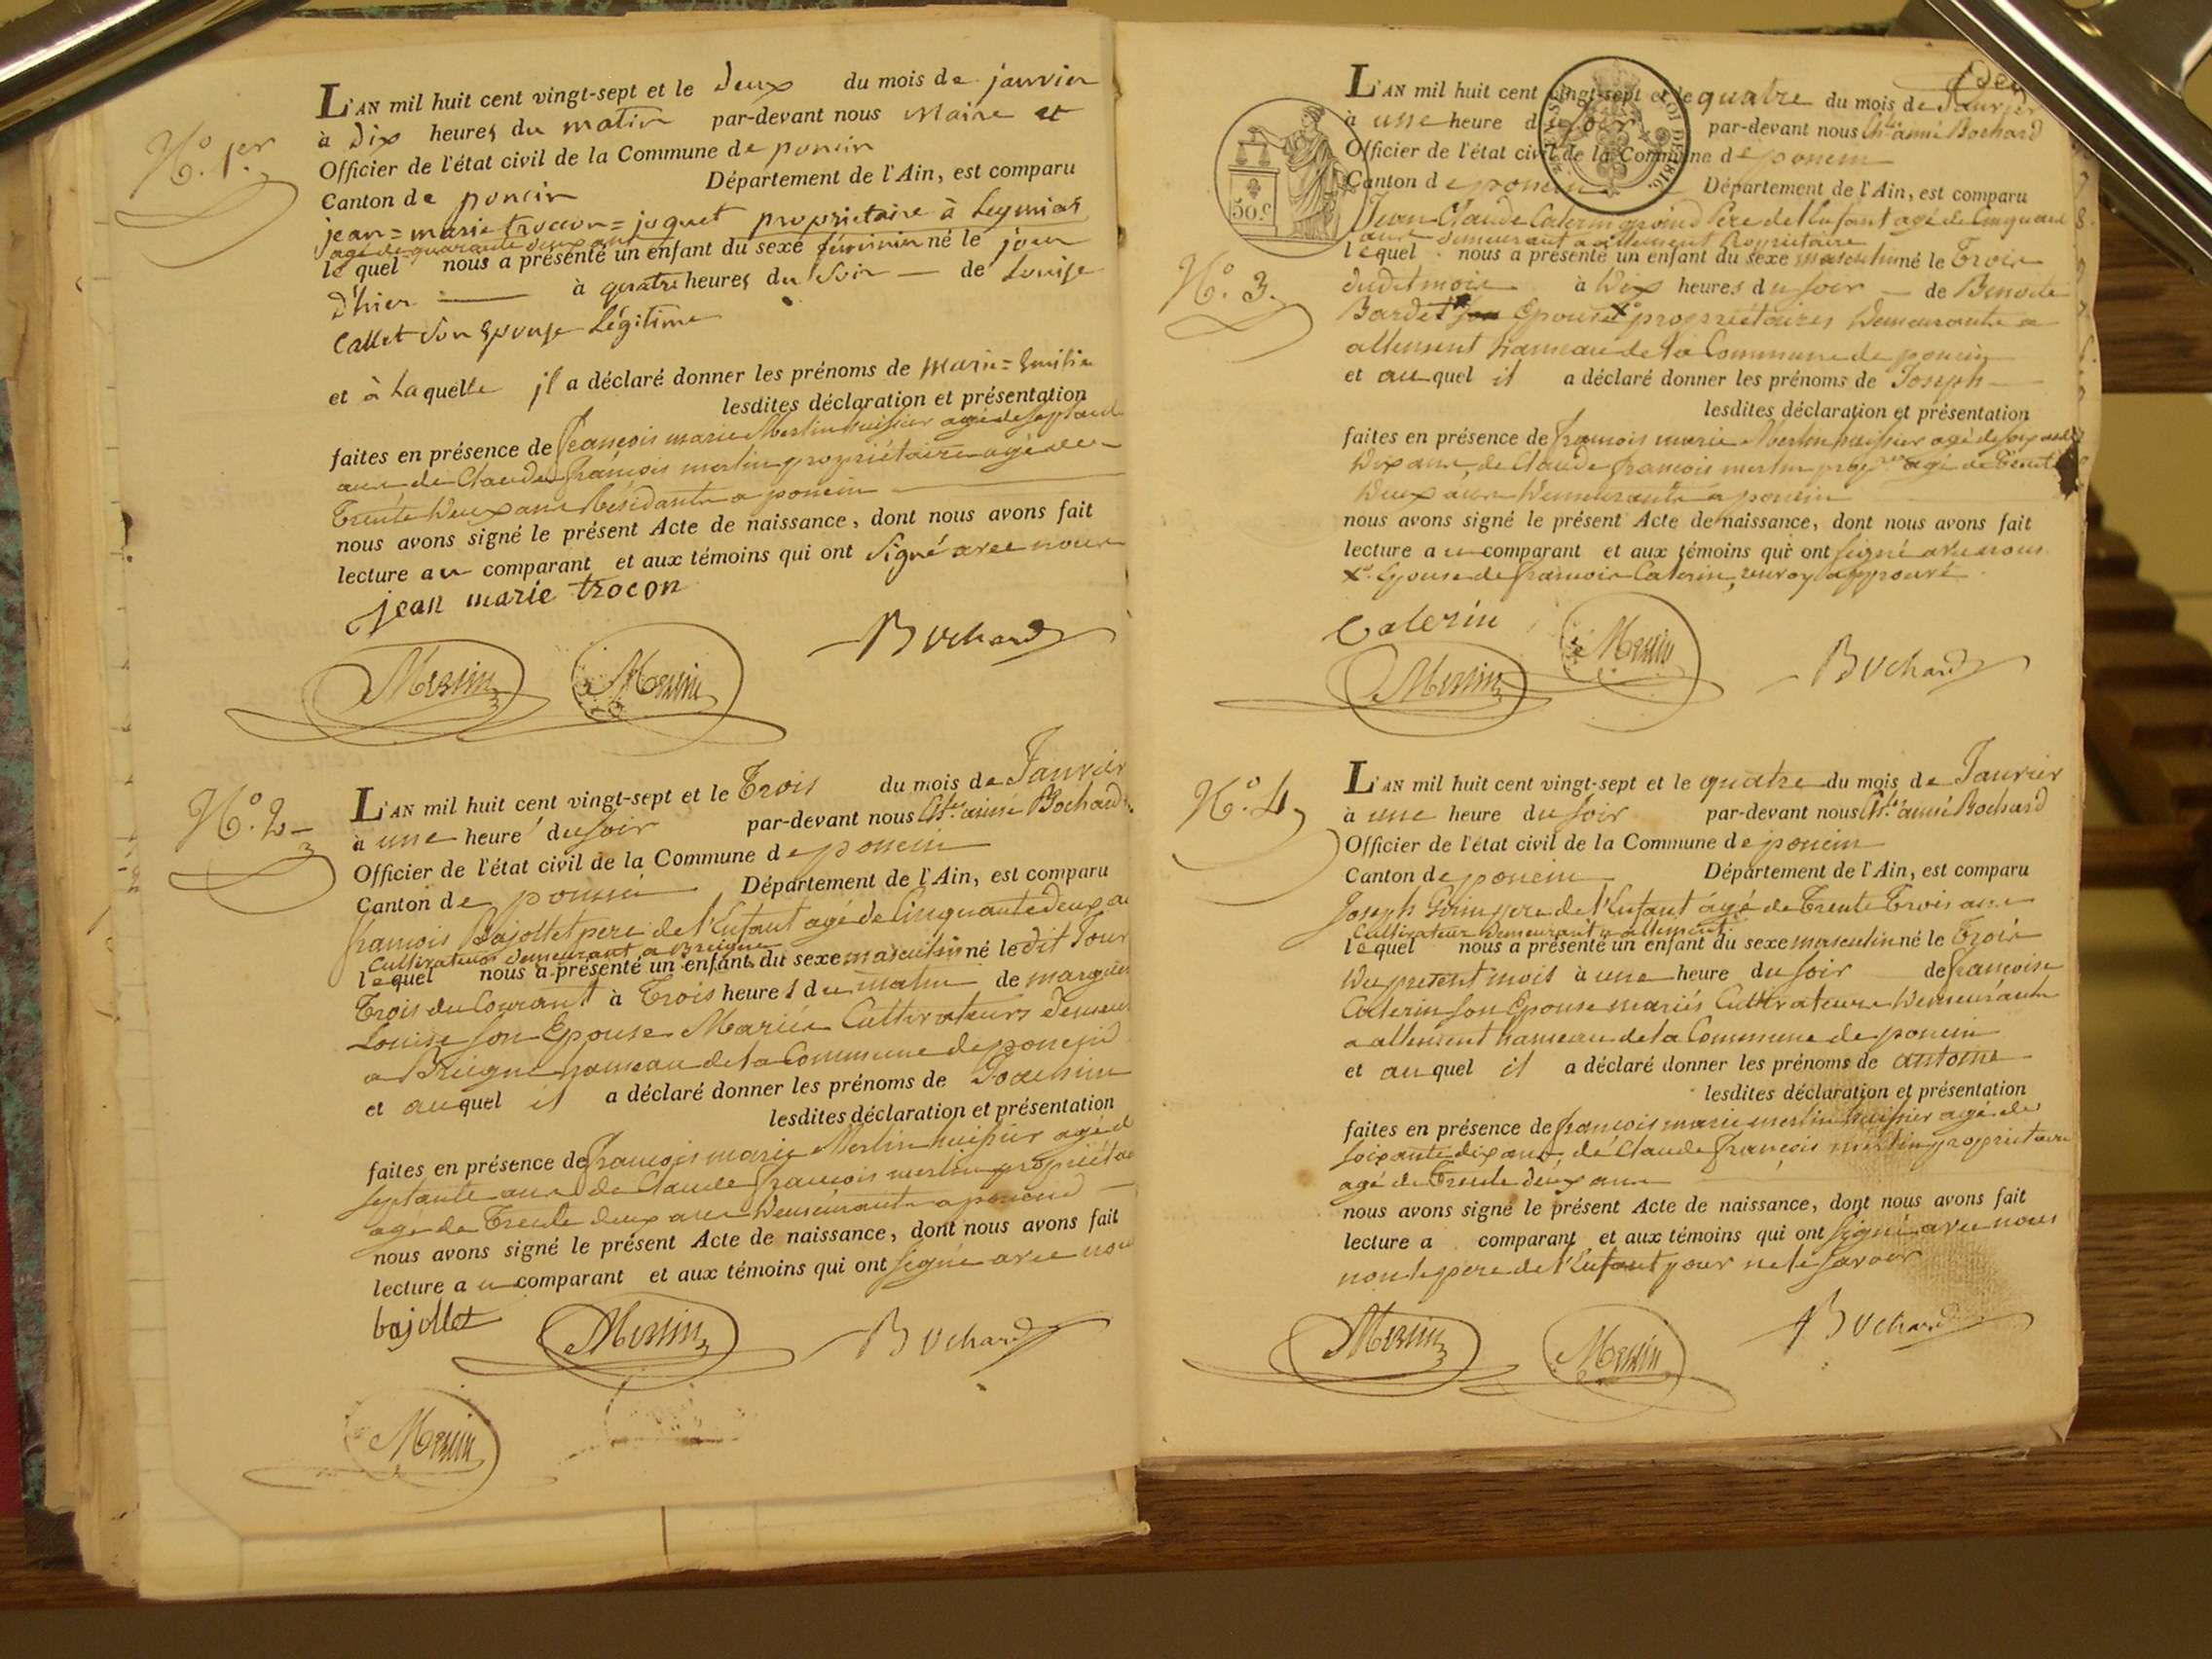 N.º 1.er
L'AN mil huit cent vingt-sept et le Deux du mois de janvier
à Dix heures du matin par-devant nous Maire et
Officier de l'état civil de la Commune de poncin
Canton de poncin Département de l'Ain, est comparu
jean=marie trocon=joguet propriétaire à Leymiat
agé de quarante deux ans
le quel nous a présenté un enfant du sexe féminin né le jour
D'hier à quatre heures du Soir de Louise
Callet Son Epouse Légitime
et à Laquelle il a déclaré donner les prénoms de Marie=Emilie
lesdites déclaration et présentation
faites en présence de françois marie Merlin huissier agé de septante
ans de Claude françois merlin propriétaire agé de
Trente Deux ans Résidants a poncin
nous avons signé le présent Acte de naissance, dont nous avons fait
lecture au comparant et aux témoins qui ont Signé avec nous
jean marie trocon
Merlin Merlin Bochard
N.º 2
L'AN mil huit cent vingt-sept et le Trois du mois de Janvier
à une heure du soir par-devant nous Ch.les aimé Bochard
Officier de l'état civil de la Commune de poncin
Canton de poncin Département de l'Ain, est comparu
françois Bajollet pere de l'Enfant agé de Cinquante deux a
Cultivateur demeurant a Breigne
lequel nous a présenté un enfant du sexe masculin né le dit Jour
Trois du Courant à Trois heures du matin de
Louise son Epouse Mariés Cultivateurs Demeur
a Breigne hameau de la Commune de poncin
et auquel il a déclaré donner les prénoms de Joachim
lesdites déclaration et présentation
faites en présence de françois marie Merlin huissier agé d
septante ans de Claude françois merlin propriétai
agé de Trente deux ans Demeurants a poncin
nous avons signé le présent Acte de naissance, dont nous avons fait
lecture au comparant et aux témoins qui ont signé avec nou
bajollet Merlin Bochard
Merlin
LOI DE 1816.
50.c
N.º 3.
L'AN mil huit cent vingt-sept et le quatre du mois de Janvier
à une heure du soir par-devant nous Ch.les aimé Bochard
Officier de l'état civil de la Commune de poncin
Canton de poncin Département de l'Ain, est comparu
Jean Claude Caterin grand Pere de l'Enfant agé de Cinquante
ans demeurant a allement Propriétaire
lequel nous a présenté un enfant du sexe masculin né le Trois
dudit mois à Dix heures du soir de Benoite
Bardet son Epouse X.º propriétaires Demeurants a
allement hameau de la Commune de poncin
et auquel il a déclaré donner les prénoms de Joseph
lesdites déclaration et présentation
faites en présence de françois marie Merlin huissier agé de soixante
Dix ans, de Claude françois merlin prop.re agé de Trente
Deux ans Demeurants a poncin
nous avons signé le présent Acte de naissance, dont nous avons fait
lecture au comparant et aux témoins qui ont signé avec nous
X.º Epouse de françois Caterin, renvoy approuvé
Caterin
Merlin Merlin Bochard
N.º 4
L'AN mil huit cent vingt-sept et le quatre du mois de Janvier
à une heure du soir par-devant nous Ch.les aimé Bochard
Officier de l'état civil de la Commune de poncin
Canton de poncin Département de l'Ain, est comparu
Joseph pere de l'Enfant agé de Trente Trois ans
Cultivateur Demeurant a allement
lequel nous a présenté un enfant du sexe masculin né le Trois
Du present mois à une heure du soir de françoise
Caterin son Epouse mariés Cultivateurs Demeurants
a allement hameau de la Commune de poncin
et auquel il a déclaré donner les prénoms de antoine
lesdites déclaration et présentation
faites en présence de françois marie merlin huissier agé de
soixante dix ans, de Claude françois merlin propriétaire
agé de Trente deux ans
nous avons signé le présent Acte de naissance, dont nous avons fait
lecture a comparant et aux témoins qui ont signé avec nous
non le pere de l'Enfant pour ne le savoir
Merlin Merlin Bochard